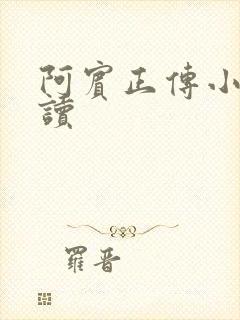 阿賓正傳小
讀
羅晋